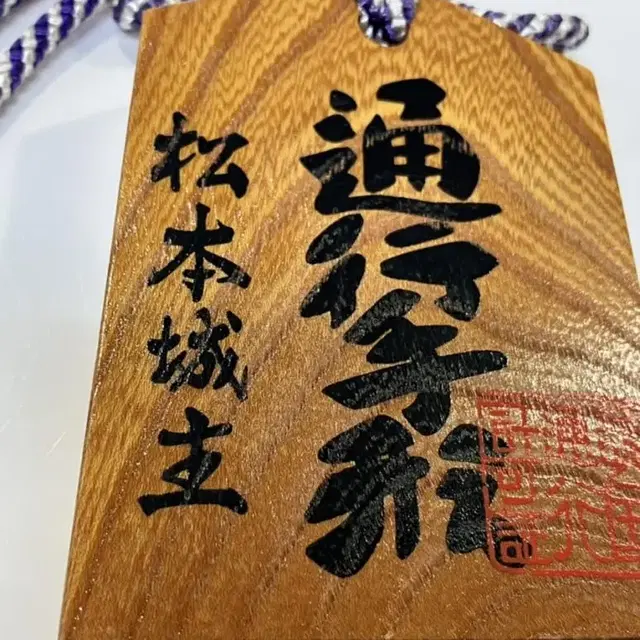 通行手形
松本城主